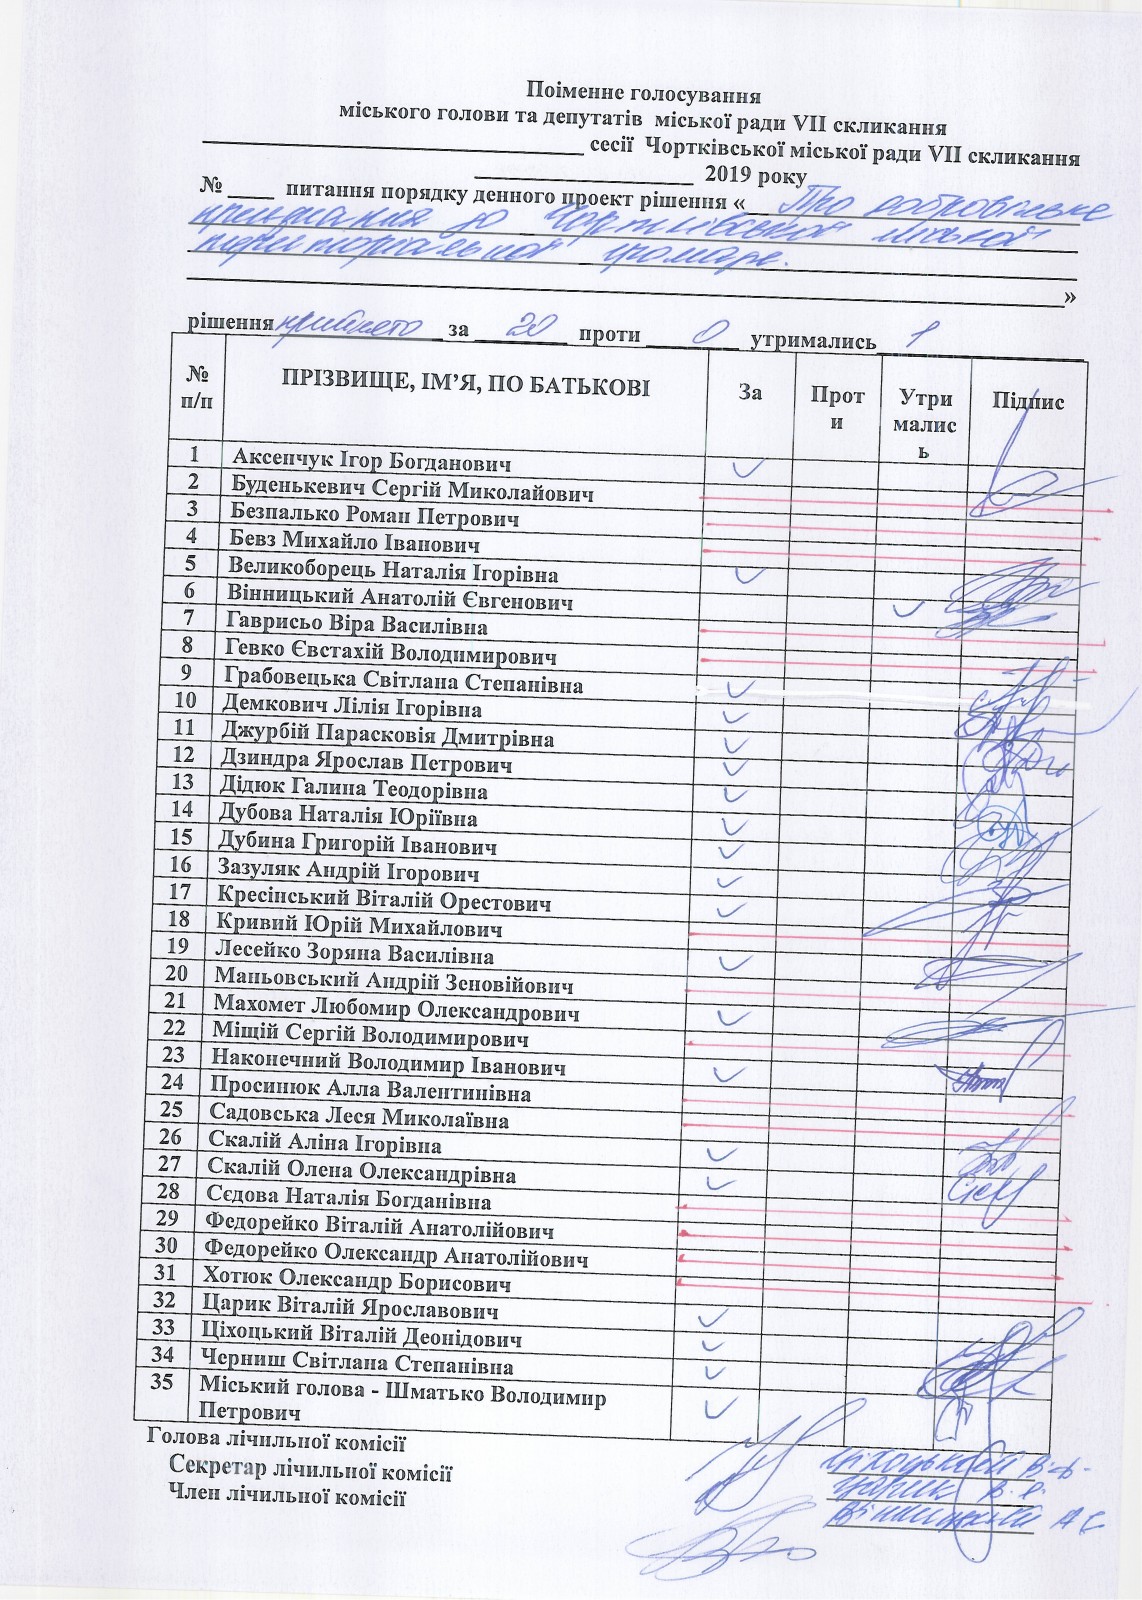 Поіменне голосування
міського голови та депутатів міської ради VII скликання
_______________ сесії Чортківської міської ради VII скликання
_______________ 2019 року
№ ____ питання порядку денного проект рішення «_ Про добровільне
приєднання до Чортківської міської
територіальної громади.
»
рішення прийнято за 20 проти 0 утримались 1
№ п/п ПРІЗВИЩЕ, ІМ’Я, ПО БАТЬКОВІ За Проти УтрималисЬ Підпис
1 Аксенчук Ігор Богданович ✓
2 Буденькевич Сергій Миколайович
3 Безпалько Роман Петрович
4 Бевз Михайло Іванович
5 Великоборець Наталія Ігорівна ✓
6 Вінницький Анатолій Євгенович ✓
7 Гаврисьо Віра Василівна
8 Гевко Євстахій Володимирович
9 Грабовецька Світлана Степанівна ✓
10 Демкович Лілія Ігорівна ✓
11 Джурбій Парасковія Дмитрівна ✓
12 Дзиндра Ярослав Петрович ✓
13 Дідюк Галина Теодорівна ✓
14 Дубова Наталія Юріївна ✓
15 Дубина Григорій Іванович ✓
16 Зазуляк Андрій Ігорович ✓
17 Кресінський Віталій Орестович ✓
18 Кривий Юрій Михайлович
19 Лесейко Зоряна Василівна ✓
20 Маньовський Андрій Зеновійович
21 Махомет Любомир Олександрович ✓
22 Міщій Сергій Володимирович
23 Наконечний Володимир Іванович ✓
24 Просинюк Алла Валентинівна
25 Садовська Леся Миколаївна
26 Скалій Аліна Ігорівна ✓
27 Скалій Олена Олександрівна ✓
28 Сєдова Наталія Богданівна
29 Федорейко Віталій Анатолійович
30 Федорейко Олександр Анатолійович
31 Хотюк Олександр Борисович
32 Царик Віталій Ярославович ✓
33 Ціхоцький Віталій Деонідович ✓
34 Черниш Світлана Степанівна ✓
35 Міський голова - Шматько Володимир Петрович ✓
Голова лічильної комісії Ціхоцький В.Д.
Секретар лічильної комісії Царик В. Я.
Член лічильної комісії Вінницький А Є